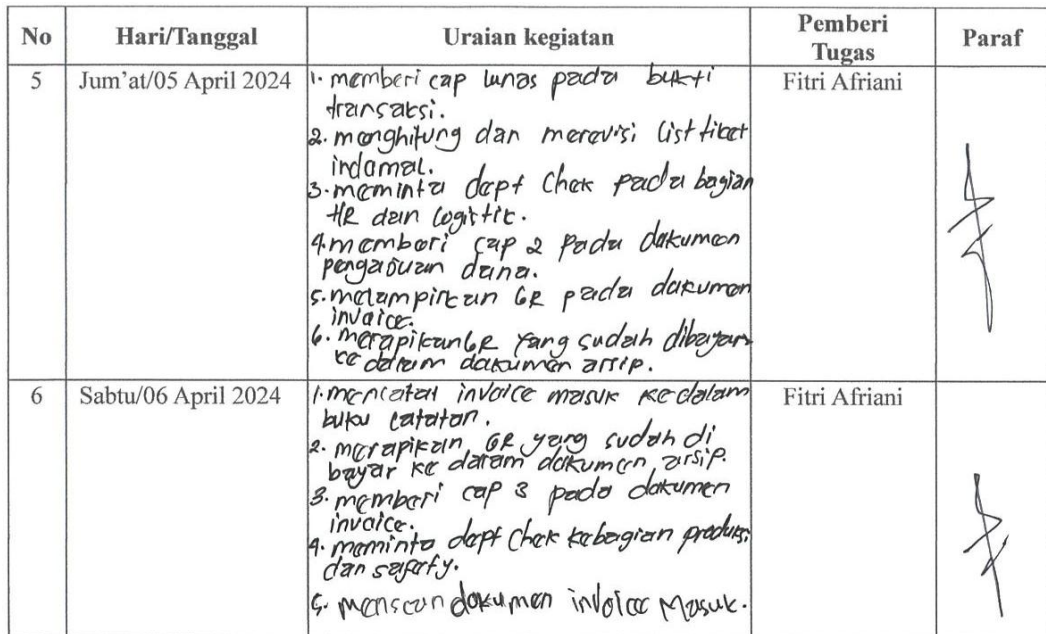 No Hari/Tanggal Uraian kegiatan Pemberi Tugas Paraf
5 Jum'at/05 April 2024 Fitri Afriani
1. memberi cap lunas pada bukti
transaksi.
2. menghitung dan merevisi list tiket
indomal.
3. meminta dept Chek pada bagian
HR dan logistik.
4. memberi cap 2 pada dokumen
pengajuan dana.
5. melampirkan GR pada dokumen
invoice.
6. merapikan GR yang sudah dibayar
ke dalam dokumen arsip.
6 Sabtu/06 April 2024 Fitri Afriani
1. mencatat invoice masuk ke dalam
buku catatan.
2. merapikan GR yang sudah di
bayar ke dalam dokumen arsip.
3. memberi cap 3 pada dokumen
invoice.
4. meminta dept Chek kebagian produksi
dan safety.
5. menscan dokumen invoice Masuk.